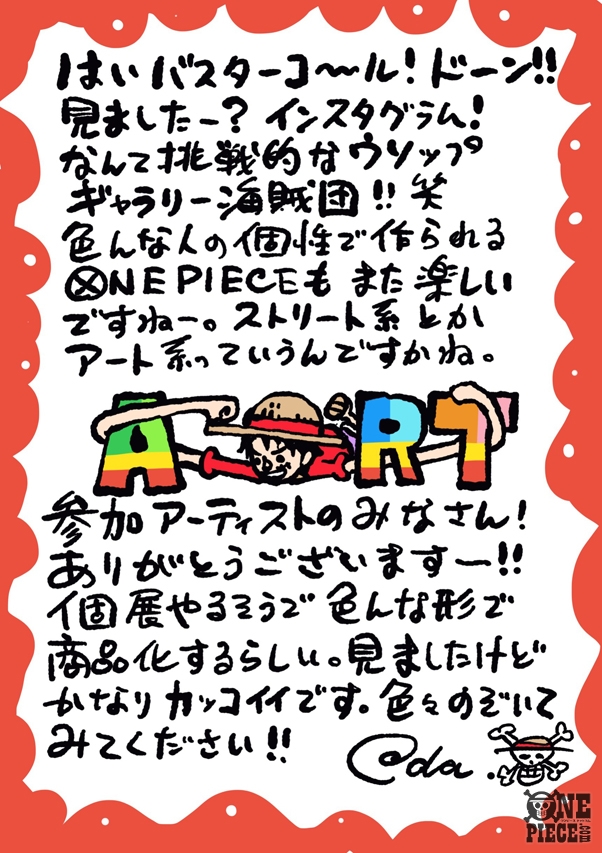 はい バスターコ〜ル! ドーン!!
見ましたー? インスタグラム!
なんて挑戦的なウソップ
ギャラリー海賊団!! 笑
色んな人の個性で作られる
ONE PIECEも また 楽しい
ですねー。ストリート系 とか
アート系っていうんですかね。
ART
参加アーティストのみなさん!
ありがとうございますー!!
個展やるそうで 色んな形で
商品化するらしい。見ましたけど
かなり カッコイイです。色々のぞいて
みてください!! Oda.
ONE
PIECE.com